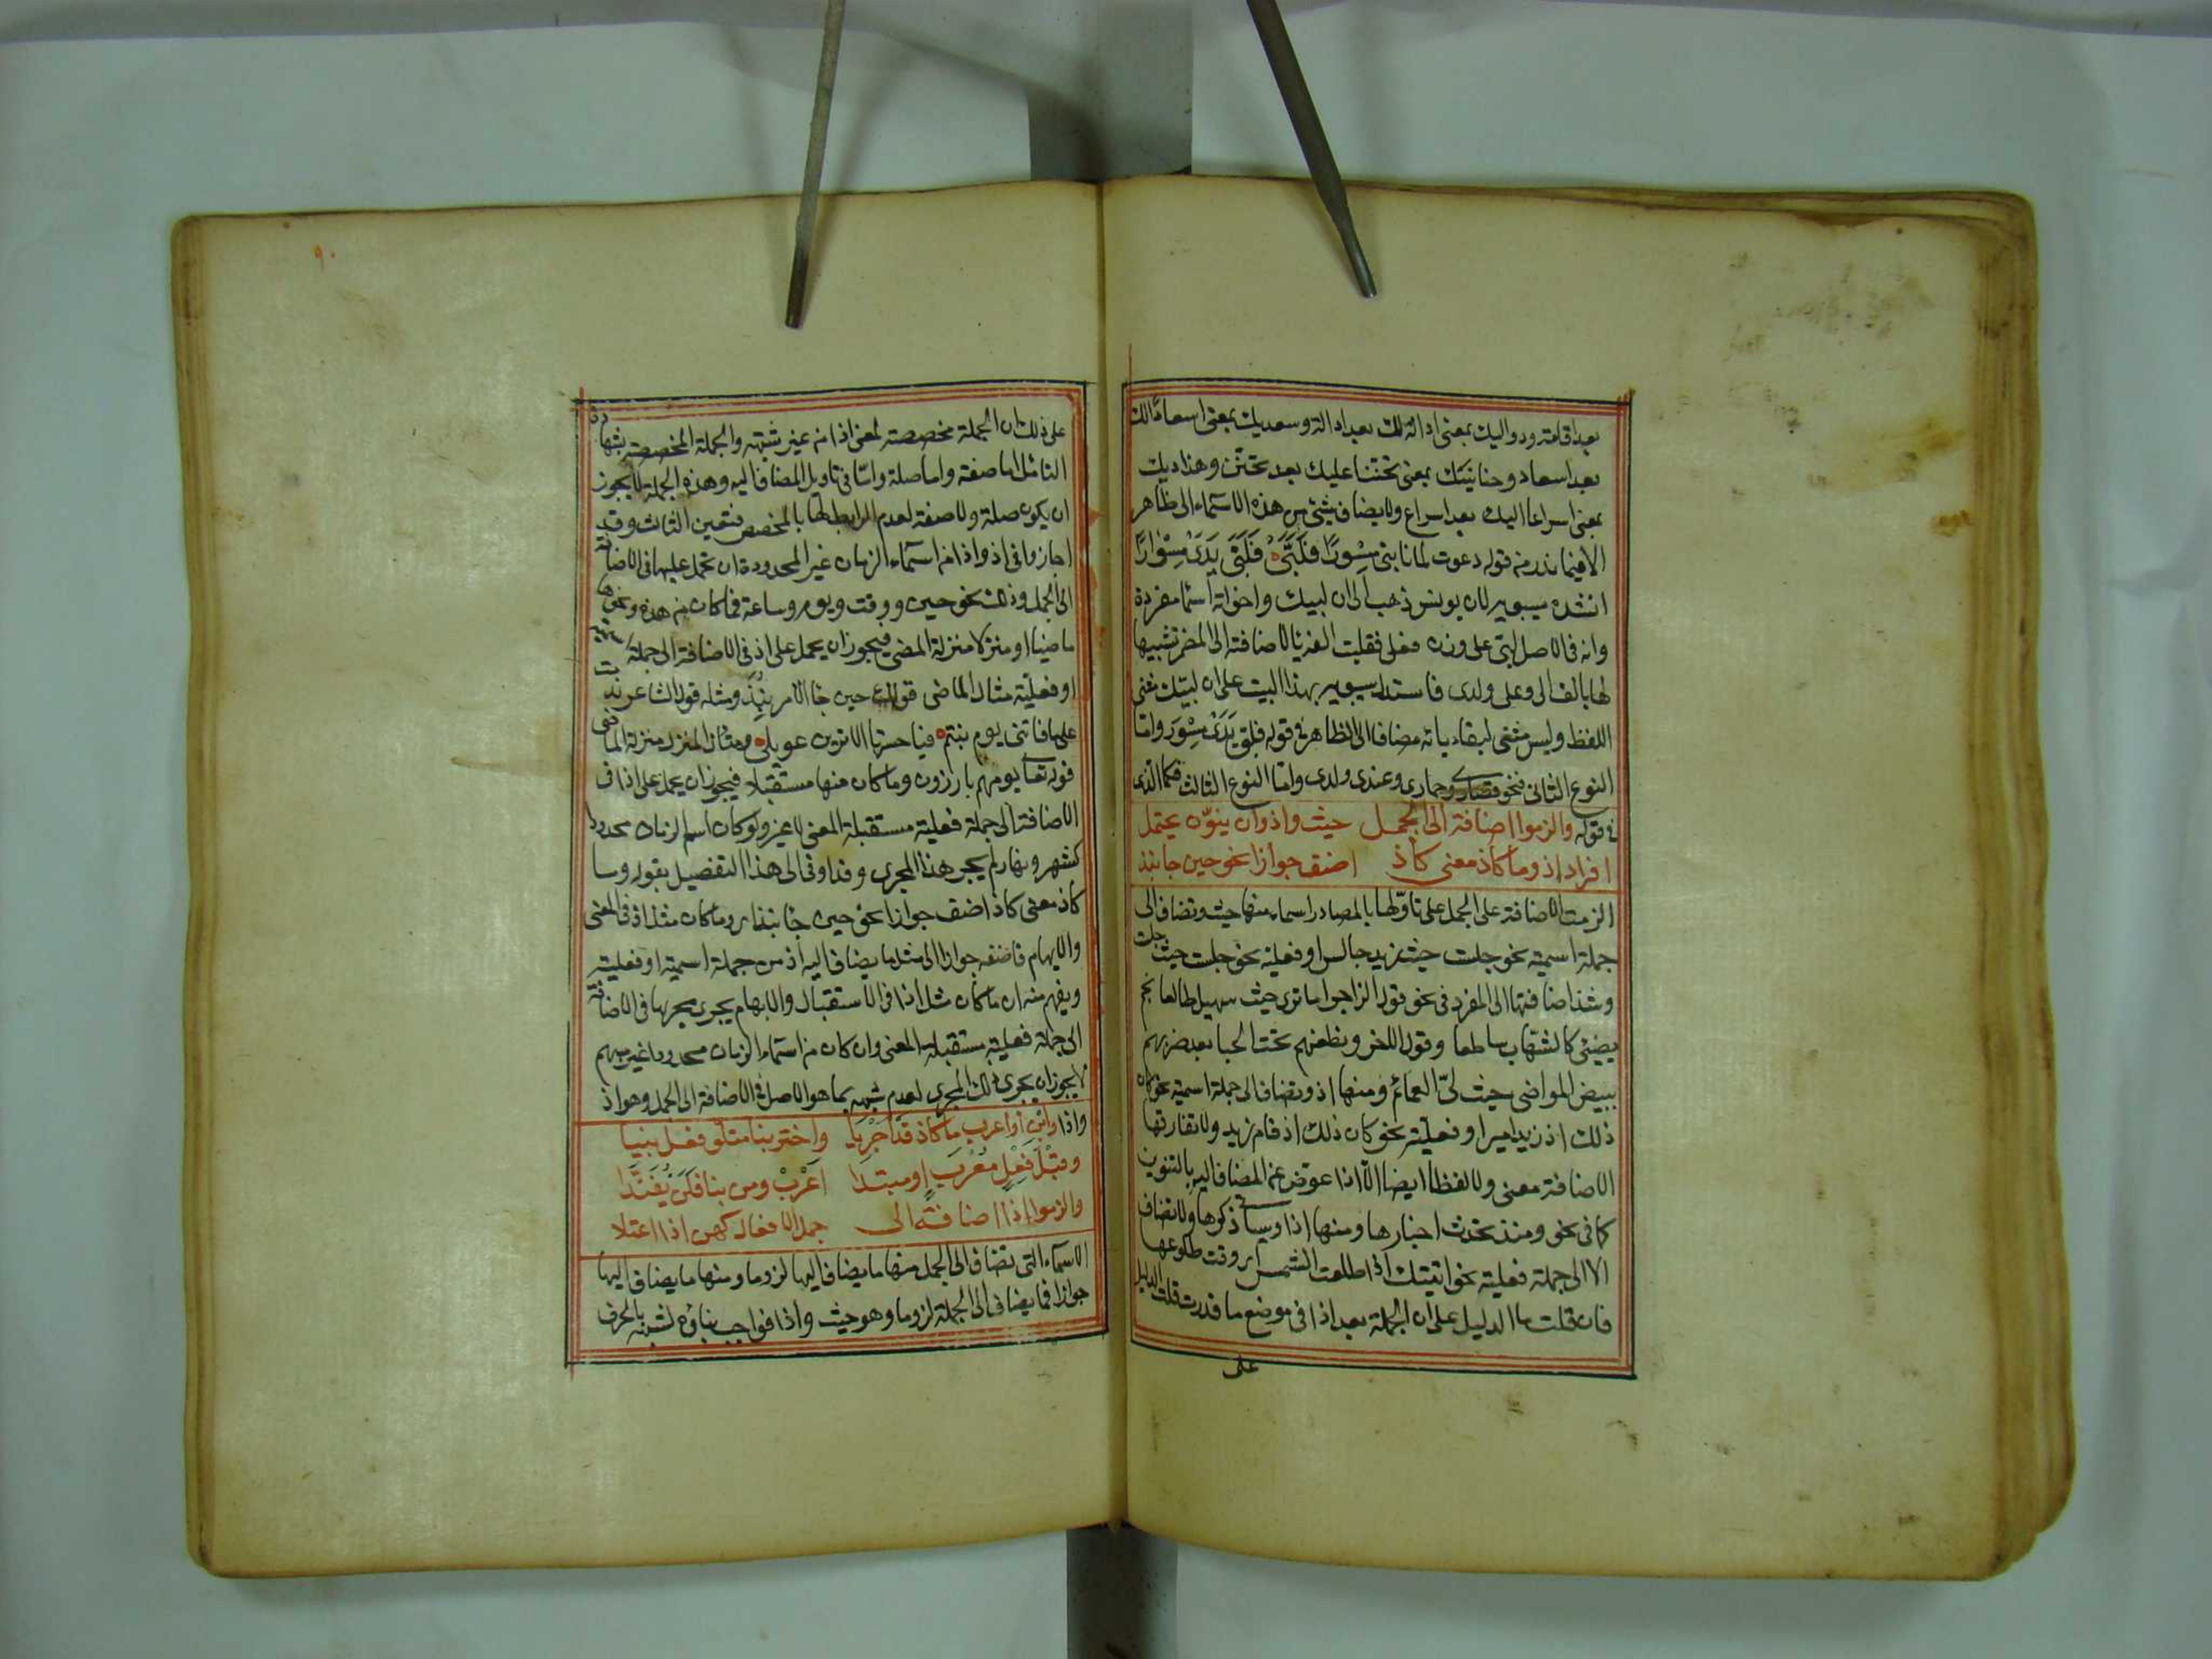 بعد اقامة ودواليك بمعنى ادالة لك بعد ادالة وسعديك بمعنى اسعادًا لك
بعد اسعاد وحنانيك بمعنى تحننا عليك بعد تحنن وهذاديك
بمعنى اسراعا اليك بعد اسراع ولا يضاف شئ من هذه الاسماء الى ظاهر
الا فيما ندر من قوله دعوت لما نابنى مِسْوَرًا فَلَبَّى فَلَبَّىْ يَدَىْ مِسْوَرا
انشده سيبويه لان يونس ذهب الى ان لبيك واخواته اسما مفردة
وانه فى الاصل لبى على وزن فعلى فقلبت الفه يا لاضافته الى المضمر تشبيها
لها بالف الى وعلى ولدى فاستدل سيبويه بهذا البيت على ان لبيك مثنى
اللفظ وليس مثنى لبقاء يائه مضافا الى الظاهر فى قوله فلبى يَدَىْ مِسْوَر واما
النوع الثانى فنحو قصارى وحمادى وعندى ولدى واما النوع الثالث فكما الذى
فى قوله والزموا اضافة الى الجمل حيث واذ وان ينوّن يحتمل
افراد اذ وما كاذ معنى كاذ اضف جوازا نحو حين جا نبذ
الزمت الاضافة على الجمل على تاوّلها بالمصادر اسماء منها حيث وتضاف الى
جملة اسمية نحو جلست حيث زيد جالس او فعلية نحو جلست حيث جلست
وشذ اضافتها الى المفرد فى نحو قول الراجز اما ترى حيث سهيل طالعا نجم
يضئ كالشهاب ساطعا وقول الاخر ونطعنهم تحت الحبا بعد ضربهم
ببيض المواضى حيث لىّ العمائم ومنها اذ وتضاف الى جملة اسمية نحو كان
ذلك اذ زيد اميرا وفعلية نحو كان ذلك اذ قام زيد ولا تفارقها
الاضافة معنى ولا لفظا ايضا الّا اذا عوّض عن المضاف اليه بالتنوين
كما فى نحو ومئذ تحدث اخبارها ومنها اذا وسياتى ذكرها ولا تضاف
الا الى جملة فعلية نحو اتيتك اذا طلعت الشمس اى وقت طلوعها
فان قلت ما الدليل على ان الجملة بعد اذا فى موضع ما قدرت قلت الدليل
على
٩٠
على ذلك ان الجملة مخصصة لمعنى اذا من غير شبهة والجملة المخصصة بشهادة
التأمل اما صفة واما صلة واما فى تاويل المضاف اليه وهذه الجملة لا يجوز
ان يكون صلة ولا صفة لعدم الرابط لها بالمخصص فتعين الثالث وقد
اجازوا فى اذ واذا من اسماء الزمان غير المحدودة ان تحمل عليها فى الاضافة
الى الجمل وذلك نحو حين ووقت ويوم وساعة فما كان من هذه ونحوها
ماضيا او منزلا منزلة المضى فيجوز ان يحمل على اذ فى الاضافة الى جملة اسمية
او فعلية مثال الماضى قولك حين جا الامر نُبِذَ ومثله قول الشاعر ندمت
على ما فاتنى يوم بنتم فيا حسرتا الا ترين عويلى ومثال المنزل منزلة الماضى
قوله تعا يوم هم بارزون وما كان منها مستقبلا فيجوز ان يحمل على اذا فى
الاضافة الى جملة فعلية مستقبلة المعنى لا غير ولو كان اسم الزمان محدودا
كشهر ونهار لم يجر هذا المجرى وقد اوفى الى هذا التفصيل بقوله وما
كاذ معنى كاذ اضف جوازا نحو حين جا نبذ اى وما كان مثل اذ فى المعنى
والابهام فاضفه جوازا الى مثل ما يضاف اليه اذ من جملة اسمية او فعلية
ويفهم منه ان ما كان مثل اذا فى الاستقبال والابهام يجرى مجراها فى الاضافة
الى جملة فعلية مستقبلة المعنى وان كان من اسماء الزمان محدودا غير مبهم
لا يجوز ان يجرى ذلك المجرى لعدم شبهه بما هو الاصل فى الاضافة الى الجمل وهو اذ
واذا وابْنِ او اعرب ما كاذ قد اجريا واختر بنا متلوّ فعل بنيا
وقَبْلَ فِعْلٍ مُعْرَبٍ او مبتدا اَعْرِبْ ومن بنا فَلَنْ يُفَنَّدا
والزموا اذا اضافةً الى جمل الافعال كهن اذا اعتلا
الاسماء التى تضاف الى الجمل منها ما يضاف اليها لزوما ومنها ما يضاف اليها
جوازا فما يضاف الى الجملة لزوما وهو حيث واذ واذا فواجب بناؤه لشبهه بالحرف